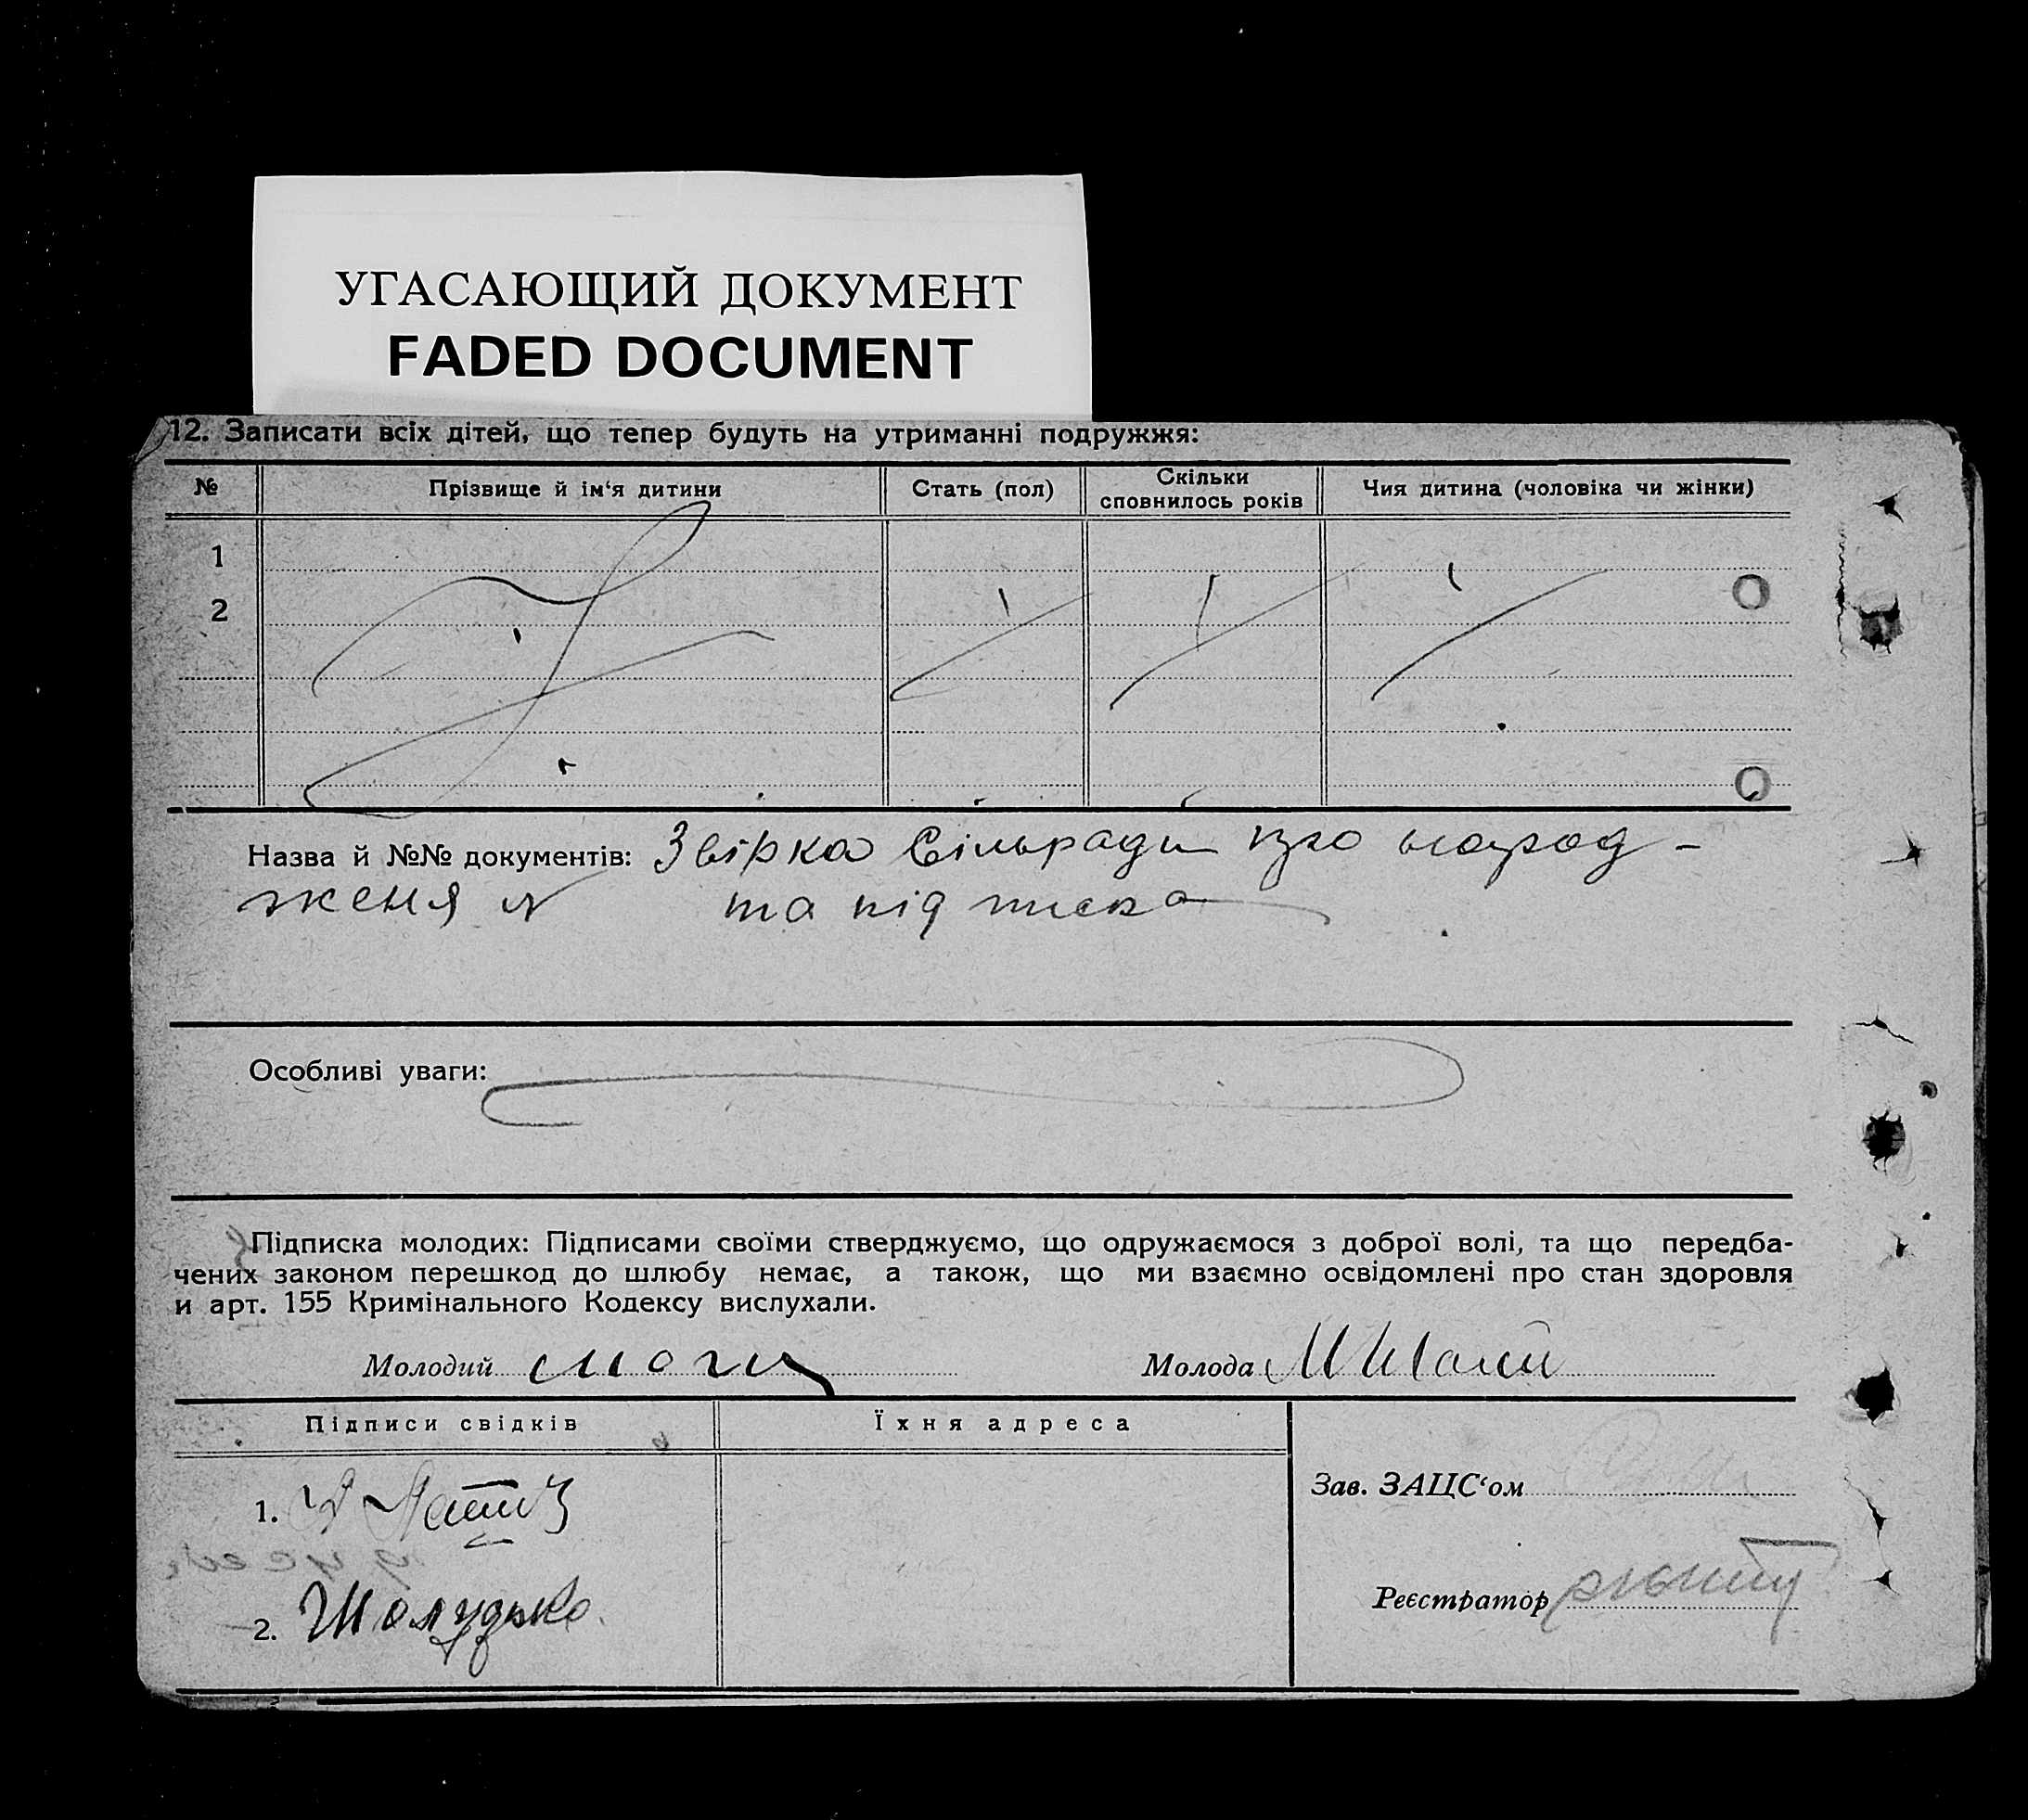 УГАСАЮЩИЙ ДОКУМЕНТ
FADED DOCUMENT
12. Записати всіх дітей, що тепер будуть на утриманні подружжя:
№ Прізвище й ім‘я дитини Стать (пол) Скільки сповнилось років Чия дитина (чоловіка чи жінки)
1
2
Назва й №№ документів: Звірка Сільради про народ-
женя № та підписка
Особливі уваги:
Підписка молодих: Підписами своїми стверджуємо, що одружаємося з доброї волі, та що передба-
чених законом перешкод до шлюбу немає, а також, що ми взаємно освідомлені про стан здоровля
и арт. 155 Кримінального Кодексу вислухали.
Молодий Молода
Підписи свідків Їхня адреса
Зав. ЗАЦС‘ом
1.
Реєстратор
2. Шолудько